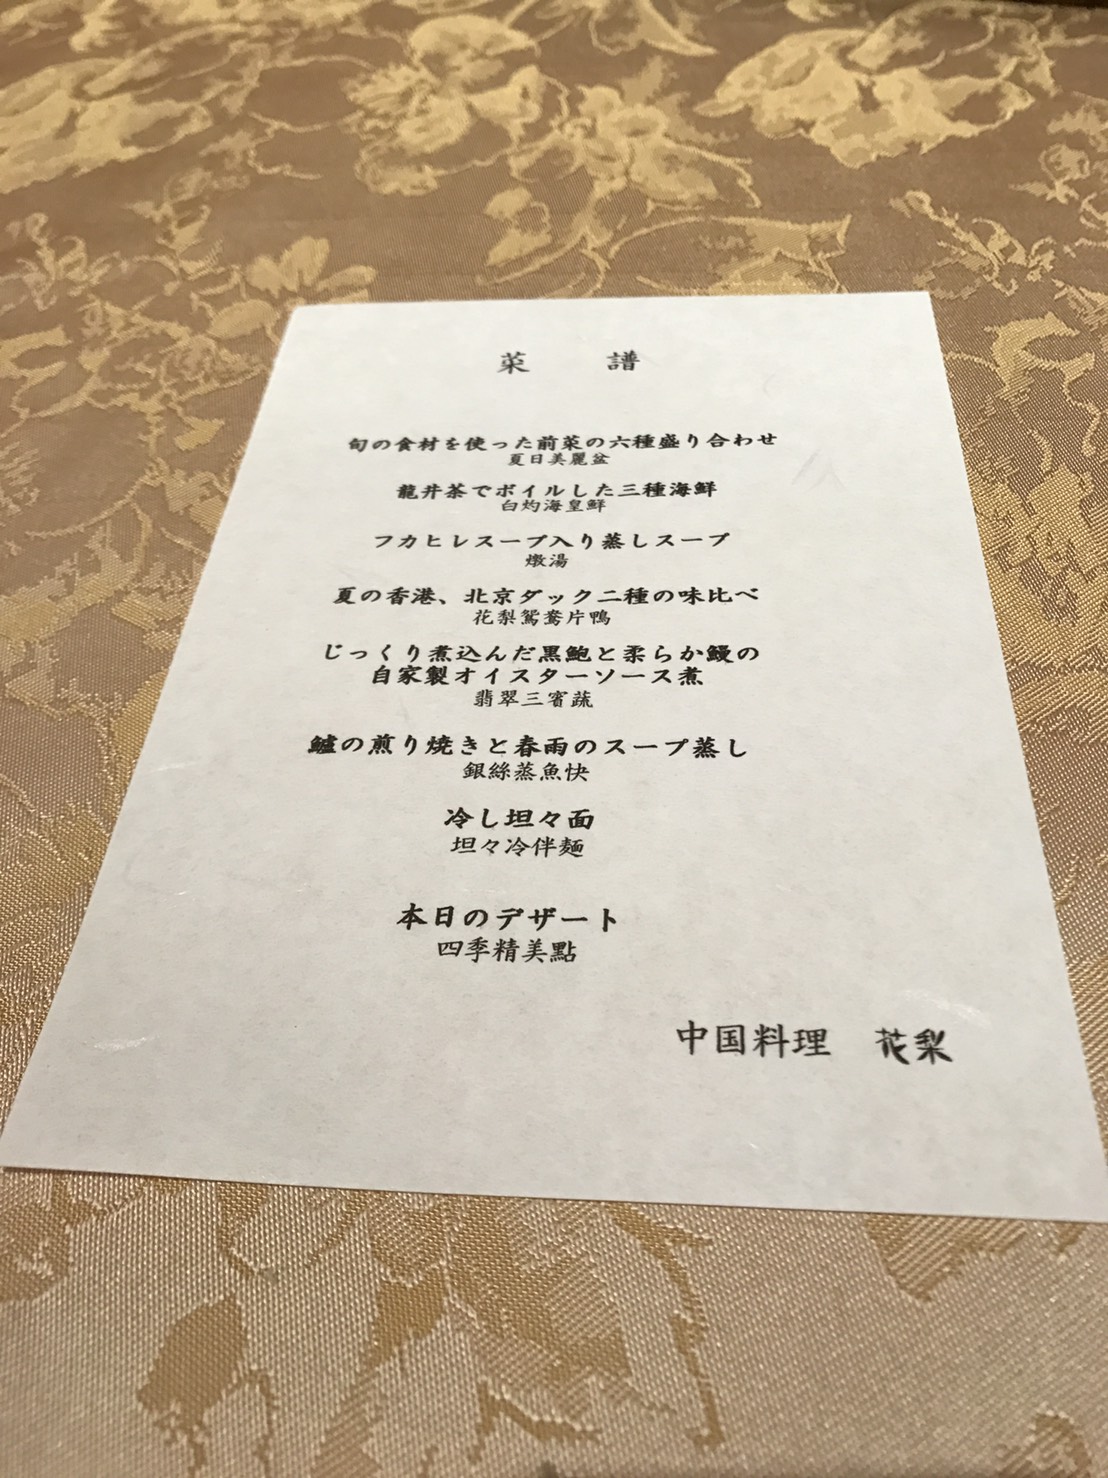 菜 譜
旬の食材を使った前菜の六種盛り合わせ
夏日美麗盆
龍井茶でボイルした三種海鮮
白灼海皇鮮
フカヒレスープ入り蒸しスープ
燉湯
夏の香港、北京ダック二種の味比べ
花梨鴛鴦片鴨
じっくり煮込んだ黒鮑と柔らか鰻の
自家製オイスターソース煮
翡翠三賓蔬
鱸の煎り焼きと春雨のスープ蒸し
銀絲蒸魚快
冷し坦々面
坦々冷伴麺
本日のデザート
四季精美點
中国料理 花梨